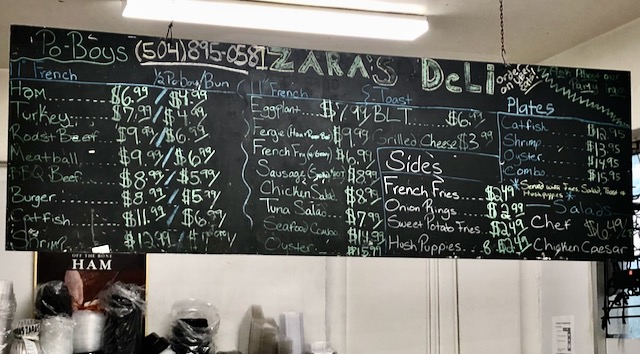 Po-Boys (504) 895-0581 ZARA'S DELI
French ½ Po-boy/Bun
Ham $6.99 / $4.99
Turkey $7.99 / $4.99
Roast Beef $9.99 / $6.99
Meatball $9.99 / $6.99
BBQ Beef $8.99 / $5.99
Burger $8.99 / $5.99
Catfish $11.99 / $6.99
Shrimp $12.99
French
Eggplant $7.99
Ferge $9.99
French Fry $6.99
Sausage
Chicken Salad $8.99
Tuna Salad $7.99
Seafood Combo $14.99
Oyster $15.99
Toast
BLT $6.99
Grilled Cheese $3.99
Sides
French Fries $2.49
Onion Rings $2.99
Sweet Potato Fries $2.49
Hush Puppies 8 $2.49
Plates
Catfish $12.95
Shrimp $13.95
Oyster $14.95
Combo $15.95
Served with Fries, Salad, Toast &
Hushpuppies
Salads
Chef
Chicken Caesar
OFF THE BONE
HAM